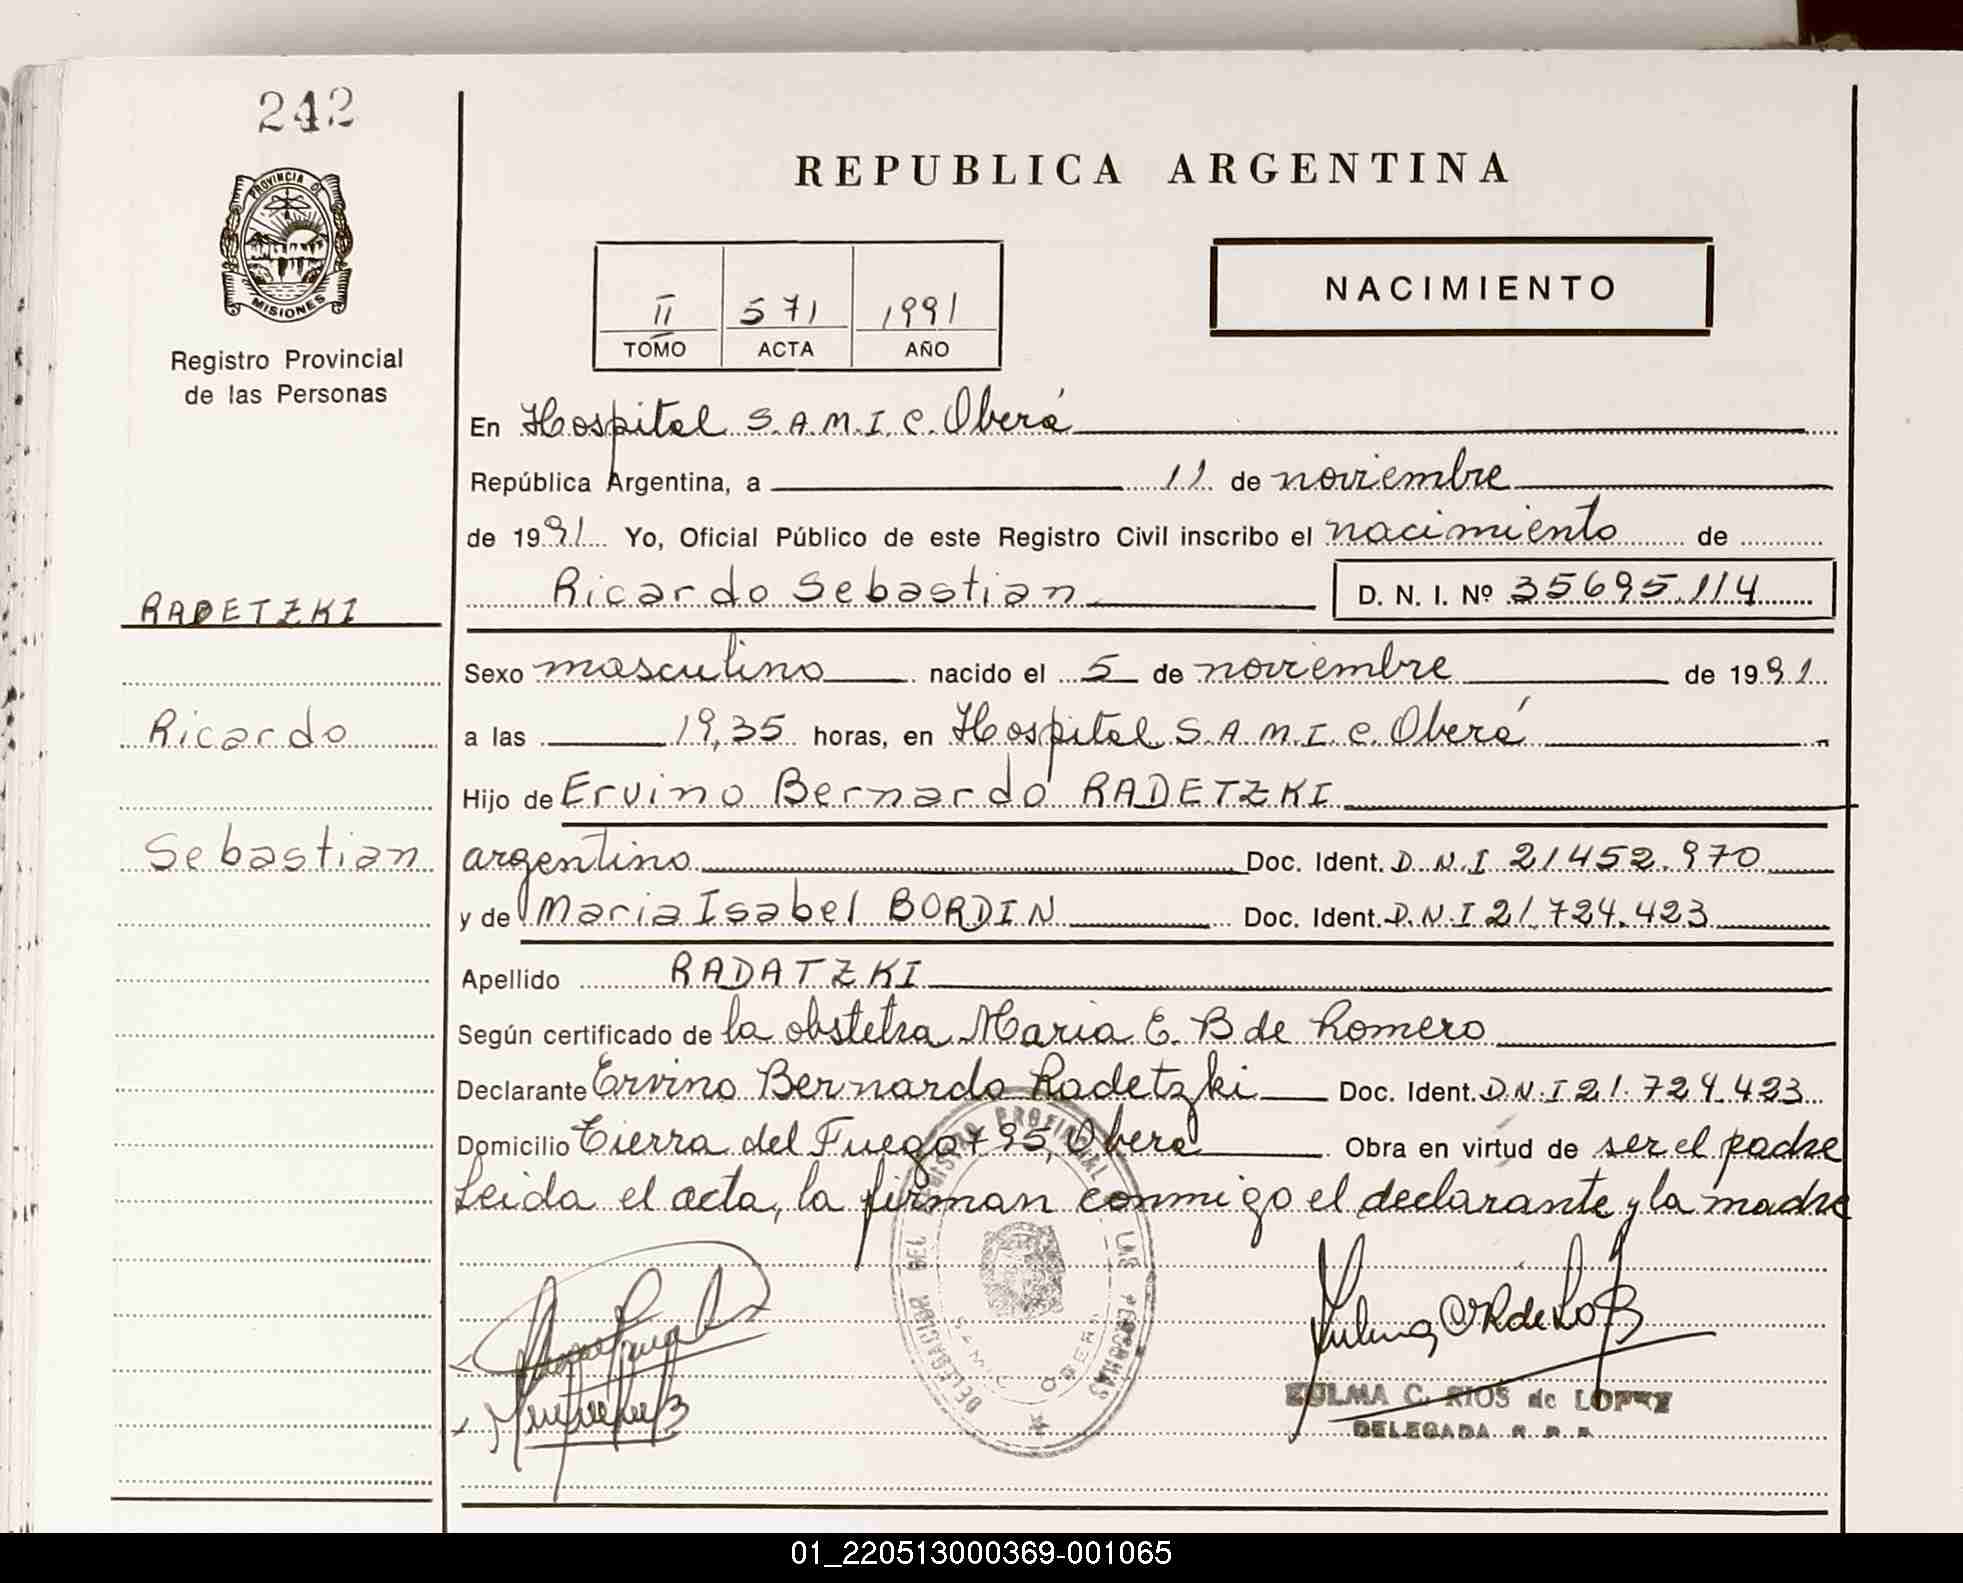 242
REPUBLICA ARGENTINA
PROVINCIA D
MISIONES
Registro Provincial
de las Personas
II 571 1991
TOMO ACTA AÑO
NACIMIENTO
En Hospital S.A.M.I.C. Oberá
República Argentina, a 11 de noviembre
de 1991 Yo, Oficial Público de este Registro Civil inscribo el nacimiento de
RADETZKI
Ricardo Sebastian D. N. I. Nº 35695.114
Sexo masculino nacido el 5 de noviembre de 1991
Ricardo
a las 19,35 horas, en Hospital S.A.M.I.C. Oberá
Hijo de Ervino Bernardo RADETZKI
Sebastian
argentino Doc. Ident. D.N.I 21452.970
y de Maria Isabel BORDIN Doc. Ident. D.N.I 21.724.423
Apellido RADATZKI
Según certificado de la obstetra Maria E. B de Romero
Declarante Ervino Bernardo Radetzki Doc. Ident. D.N.I 21.724.423
Domicilio Tierra del Fuego 795, Obera Obra en virtud de ser el padre
Leida el acta, la firman conmigo el declarante y la madre
DELEGACION DEL REGISTRO PROVINCIAL LAS PERSONAS
OBERA
ZULMA C. RIOS de LOPEZ
DELEGADA R. P. P.
01_220513000369-001065